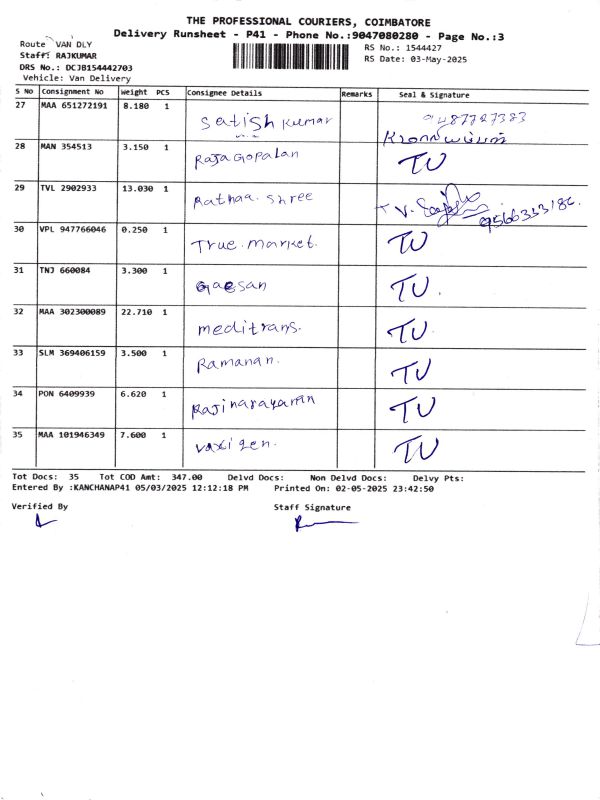 THE PROFESSIONAL COURIERS, COIMBATORE
Delivery Runsheet - P41 - Phone No.:9047080280 - Page No.:3
Route VAN DLY
RS No.: 1544427
Staff: RAJKUMAR
RS Date: 03-May-2025
DRS No.: DCJB154442703
Vehicle: Van Delivery
S No Consignment No Weight PCS Consignee Details Remarks Seal & Signature
27 MAA 651272191 8.180 1 Satish Kumar
28 MAN 354513 3.150 1 Raja Gopalan TU
29 TVL 2902933 13.030 1 Rathaa. Shree 9566333186.
30 VPL 947766046 0.250 1 True. market. TU
31 TNJ 660084 3.300 1 TU.
32 MAA 302300089 22.710 1 meditrans. TU.
33 SLM 369406159 3.500 1 Ramanan. TU
34 PON 6409939 6.620 1 Rajinarayanan TU
35 MAA 101946349 7.600 1 vaxigen. TU
Tot Docs: 35 Tot COD Amt: 347.00 Delvd Docs: Non Delvd Docs: Delvy Pts:
Entered By :KANCHANAP41 05/03/2025 12:12:18 PM Printed On: 02-05-2025 23:42:50
Verified By Staff Signature